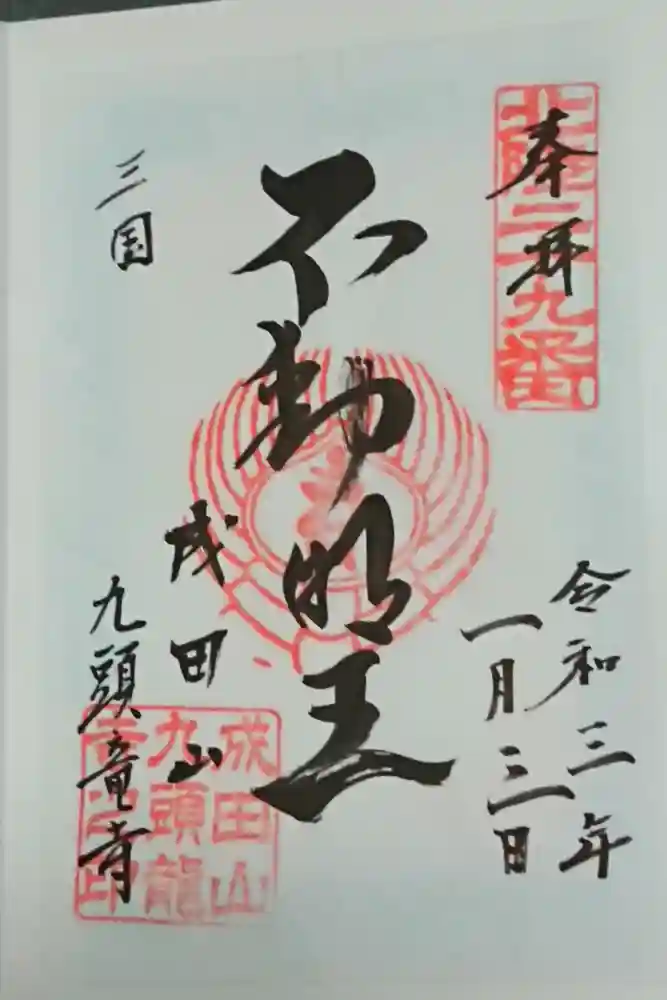 奉拝
北陸三十九番
令和三年
一月三日
不動明王
三国
成田山
九頭竜寺
成田山
九頭龍
寺之印